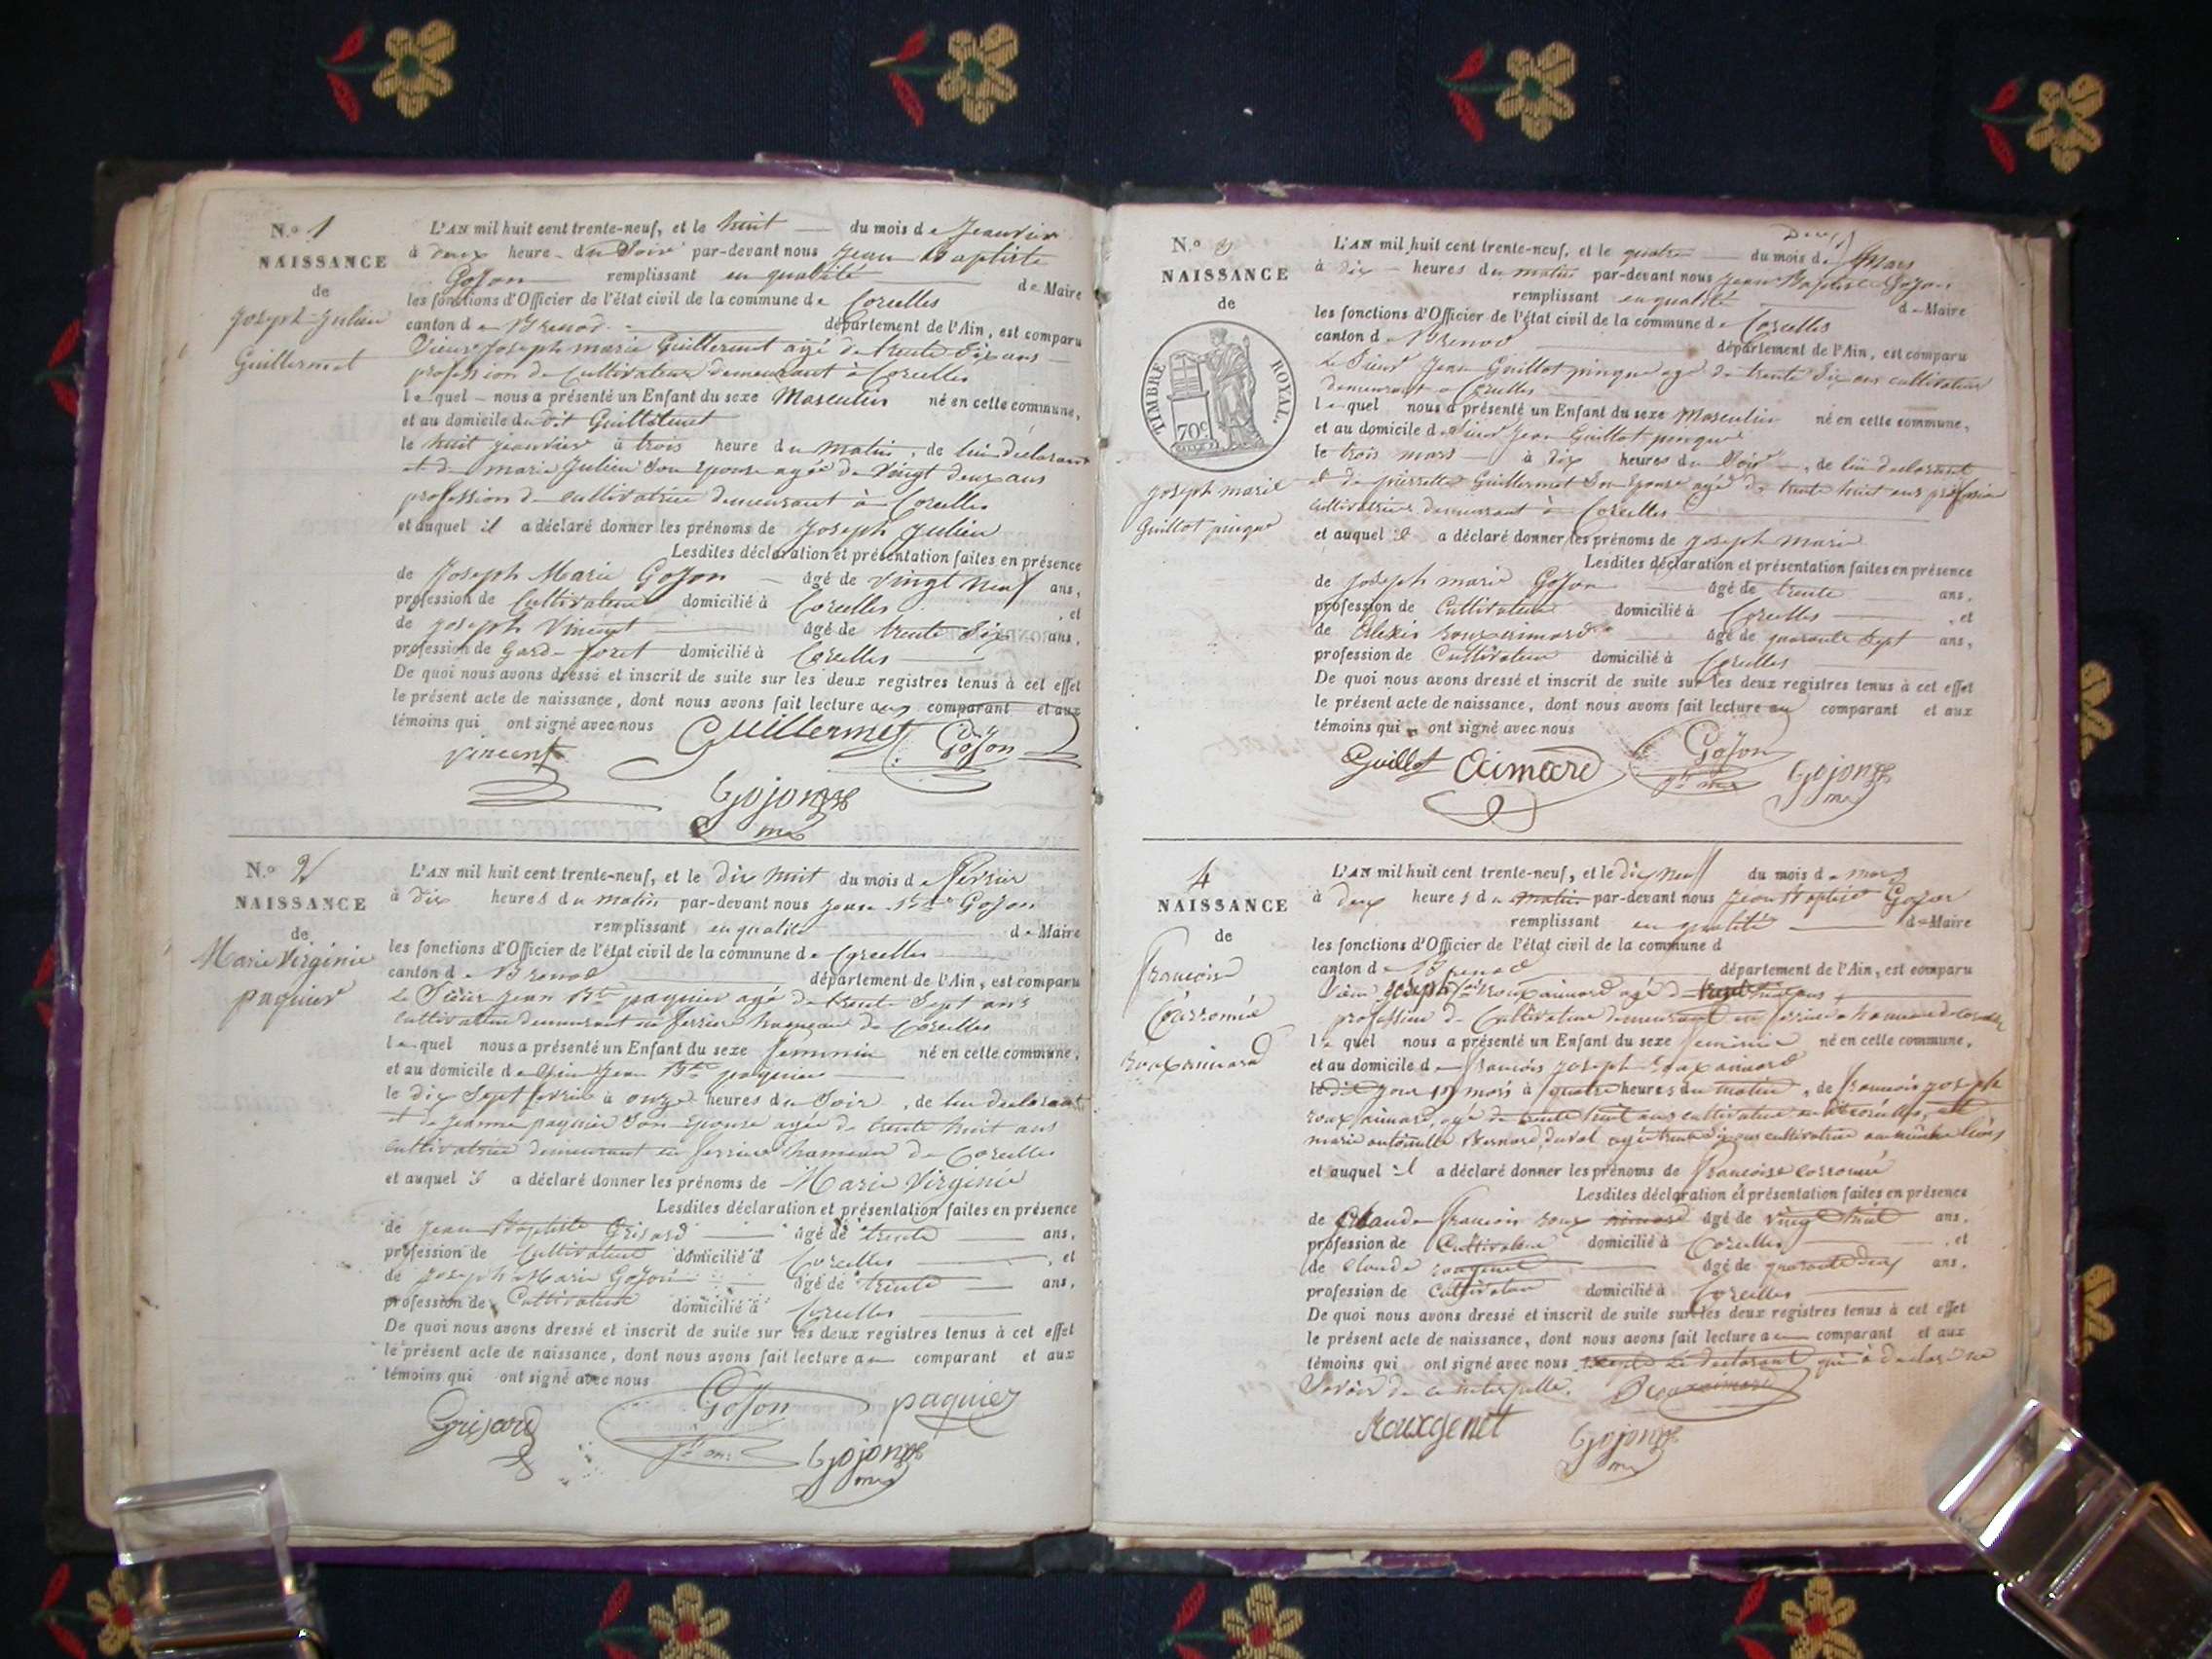 N.º 1
NAISSANCE
de
Joseph Julien
Guillermet
L'AN mil huit cent trente-neuf, et le huit du mois de Jeanvier
à deux heure du Soir par-devant nous Jean Baptiste
Gojon remplissant en qualité de Maire
les fonctions d'Officier de l'état civil de la commune de Corcelles
canton de Brenod département de l'Ain, est comparu
Sieur Joseph marie Guillermet agé de trente Six ans
profession de Cultivateur demeurant à Corcelles
lequel nous a présenté un Enfant du sexe Masculin né en cette commune,
et au domicile du dit Guillermet
le huit jeanvier à trois heure du matin, de lui declarant
et de marie Julien Son Epouse agée de Vingt deux ans
profession de cultivatrice demeurant à Corcelles
et auquel il a déclaré donner les prénoms de Joseph Julien
Lesdites déclaration et présentation faites en présence
de Joseph Marie Gojon âgé de vingt neuf ans,
profession de Cultivateur domicilié à Corcelles, et
de joseph Vincent âgé de trente Six ans,
profession de Gard-foret domicilié à Corcelles
De quoi nous avons dressé et inscrit de suite sur les deux registres tenus à cet effet
le présent acte de naissance, dont nous avons fait lecture aux comparant et aux
témoins qui ont signé avec nous
Guillermet Gojon
vincent
Gojon
N.º 2
NAISSANCE
de
Marie Virginie
paquier
L'AN mil huit cent trente-neuf, et le dix huit du mois de Février
à dix heures du matin par-devant nous Jean Bte Gojon
remplissant en qualité de Maire
les fonctions d'Officier de l'état civil de la commune de Corcelles
canton de Brenod département de l'Ain, est comparu
Le Sieur Jean Bte paquier agé de trente Sept ans
cultivateur demeurant en ferrier hameau de Corcelles
lequel nous a présenté un Enfant du sexe féminin né en cette commune,
et au domicile de Jean Bte paquier
le dix Sept fevrier à onze heures du Soir, de lui declarant
et de Jeanne paquier Son Epouse agée de trente huit ans
cultivatrice demeurant en ferrier hameau de Corcelles
et auquel il a déclaré donner les prénoms de Marie Virginie
Lesdites déclaration et présentation faites en présence
de Jean Baptiste Grisard âgé de trente ans,
profession de Cultivateur domicilié à Corcelles, et
de Joseph Marie Gojon âgé de trente ans,
profession de Cultivateur domicilié à Corcelles
De quoi nous avons dressé et inscrit de suite sur les deux registres tenus à cet effet
le présent acte de naissance, dont nous avons fait lecture au comparant et aux
témoins qui ont signé avec nous
Grisard Gojon paquier
Gojon
N.º 3
NAISSANCE
de
TIMBRE ROYAL.
70c
joseph marie
Guillot pinque
L'AN mil huit cent trente-neuf, et le quatre du mois de Mars
à dix heures du matin par-devant nous Jean Baptiste Gojon
remplissant en qualité de Maire
les fonctions d'Officier de l'état civil de la commune de Corcelles
canton de Brenod département de l'Ain, est comparu
Le Sieur Jean Guillot pinque agé de trente Six ans cultivateur
demeurant à Corcelles
lequel nous a présenté un Enfant du sexe Masculin né en cette commune,
et au domicile de Sieur Jean Guillot pinque
le trois mars à dix heures du Soir, de lui declarant
et de pierrette Guillermet Son Epouse agé de trente huit ans profession
cultivatrice demeurant à Corcelles
et auquel il a déclaré donner les prénoms de joseph marie
Lesdites déclaration et présentation faites en présence
de joseph marie Gojon âgé de trente ans,
profession de Cultivateur domicilié à Corcelles, et
de Alexis roux aimard âgé de quarante Sept ans,
profession de Cultivateur domicilié à Corcelles
De quoi nous avons dressé et inscrit de suite sur les deux registres tenus à cet effet
le présent acte de naissance, dont nous avons fait lecture au comparant et aux
témoins qui ont signé avec nous
Guillot Aimard Gojon Gojon
4
NAISSANCE
de
roux aimard
L'AN mil huit cent trente-neuf, et le dix neuf du mois de mars
à deux heures du matin par-devant nous Jean Baptiste Gojon
remplissant en qualité de Maire
les fonctions d'Officier de l'état civil de la commune d
canton de Brenod département de l'Ain, est comparu
Sieur joseph roux aimard agé de trente huit ans
profession de Cultivateur demeurant en ferrier hameau de Corcelles
lequel nous a présenté un Enfant du sexe feminin né en cette commune,
et au domicile de francois joseph roux aimard
le jour 19 mars à quatre heures du matin, de francois joseph
roux aimard, agé de trente huit ans cultivateur
marie antoinette Bernard duval agée trente Six ans cultivatrice
et auquel il a déclaré donner les prénoms de francoise
Lesdites déclaration et présentation faites en présence
de Claude francois roux aimard âgé de vingt huit ans,
profession de Cultivateur domicilié à Corcelles, et
de Claude rougenet âgé de quarante deux ans,
profession de Cultivateur domicilié à Corcelles
De quoi nous avons dressé et inscrit de suite sur les deux registres tenus à cet effet
le présent acte de naissance, dont nous avons fait lecture au comparant et aux
témoins qui ont signé avec nous excepté le declarant qui a declaré ne
Savoir de ce interpellé. Rouxaimard
Rouxgenet Gojon